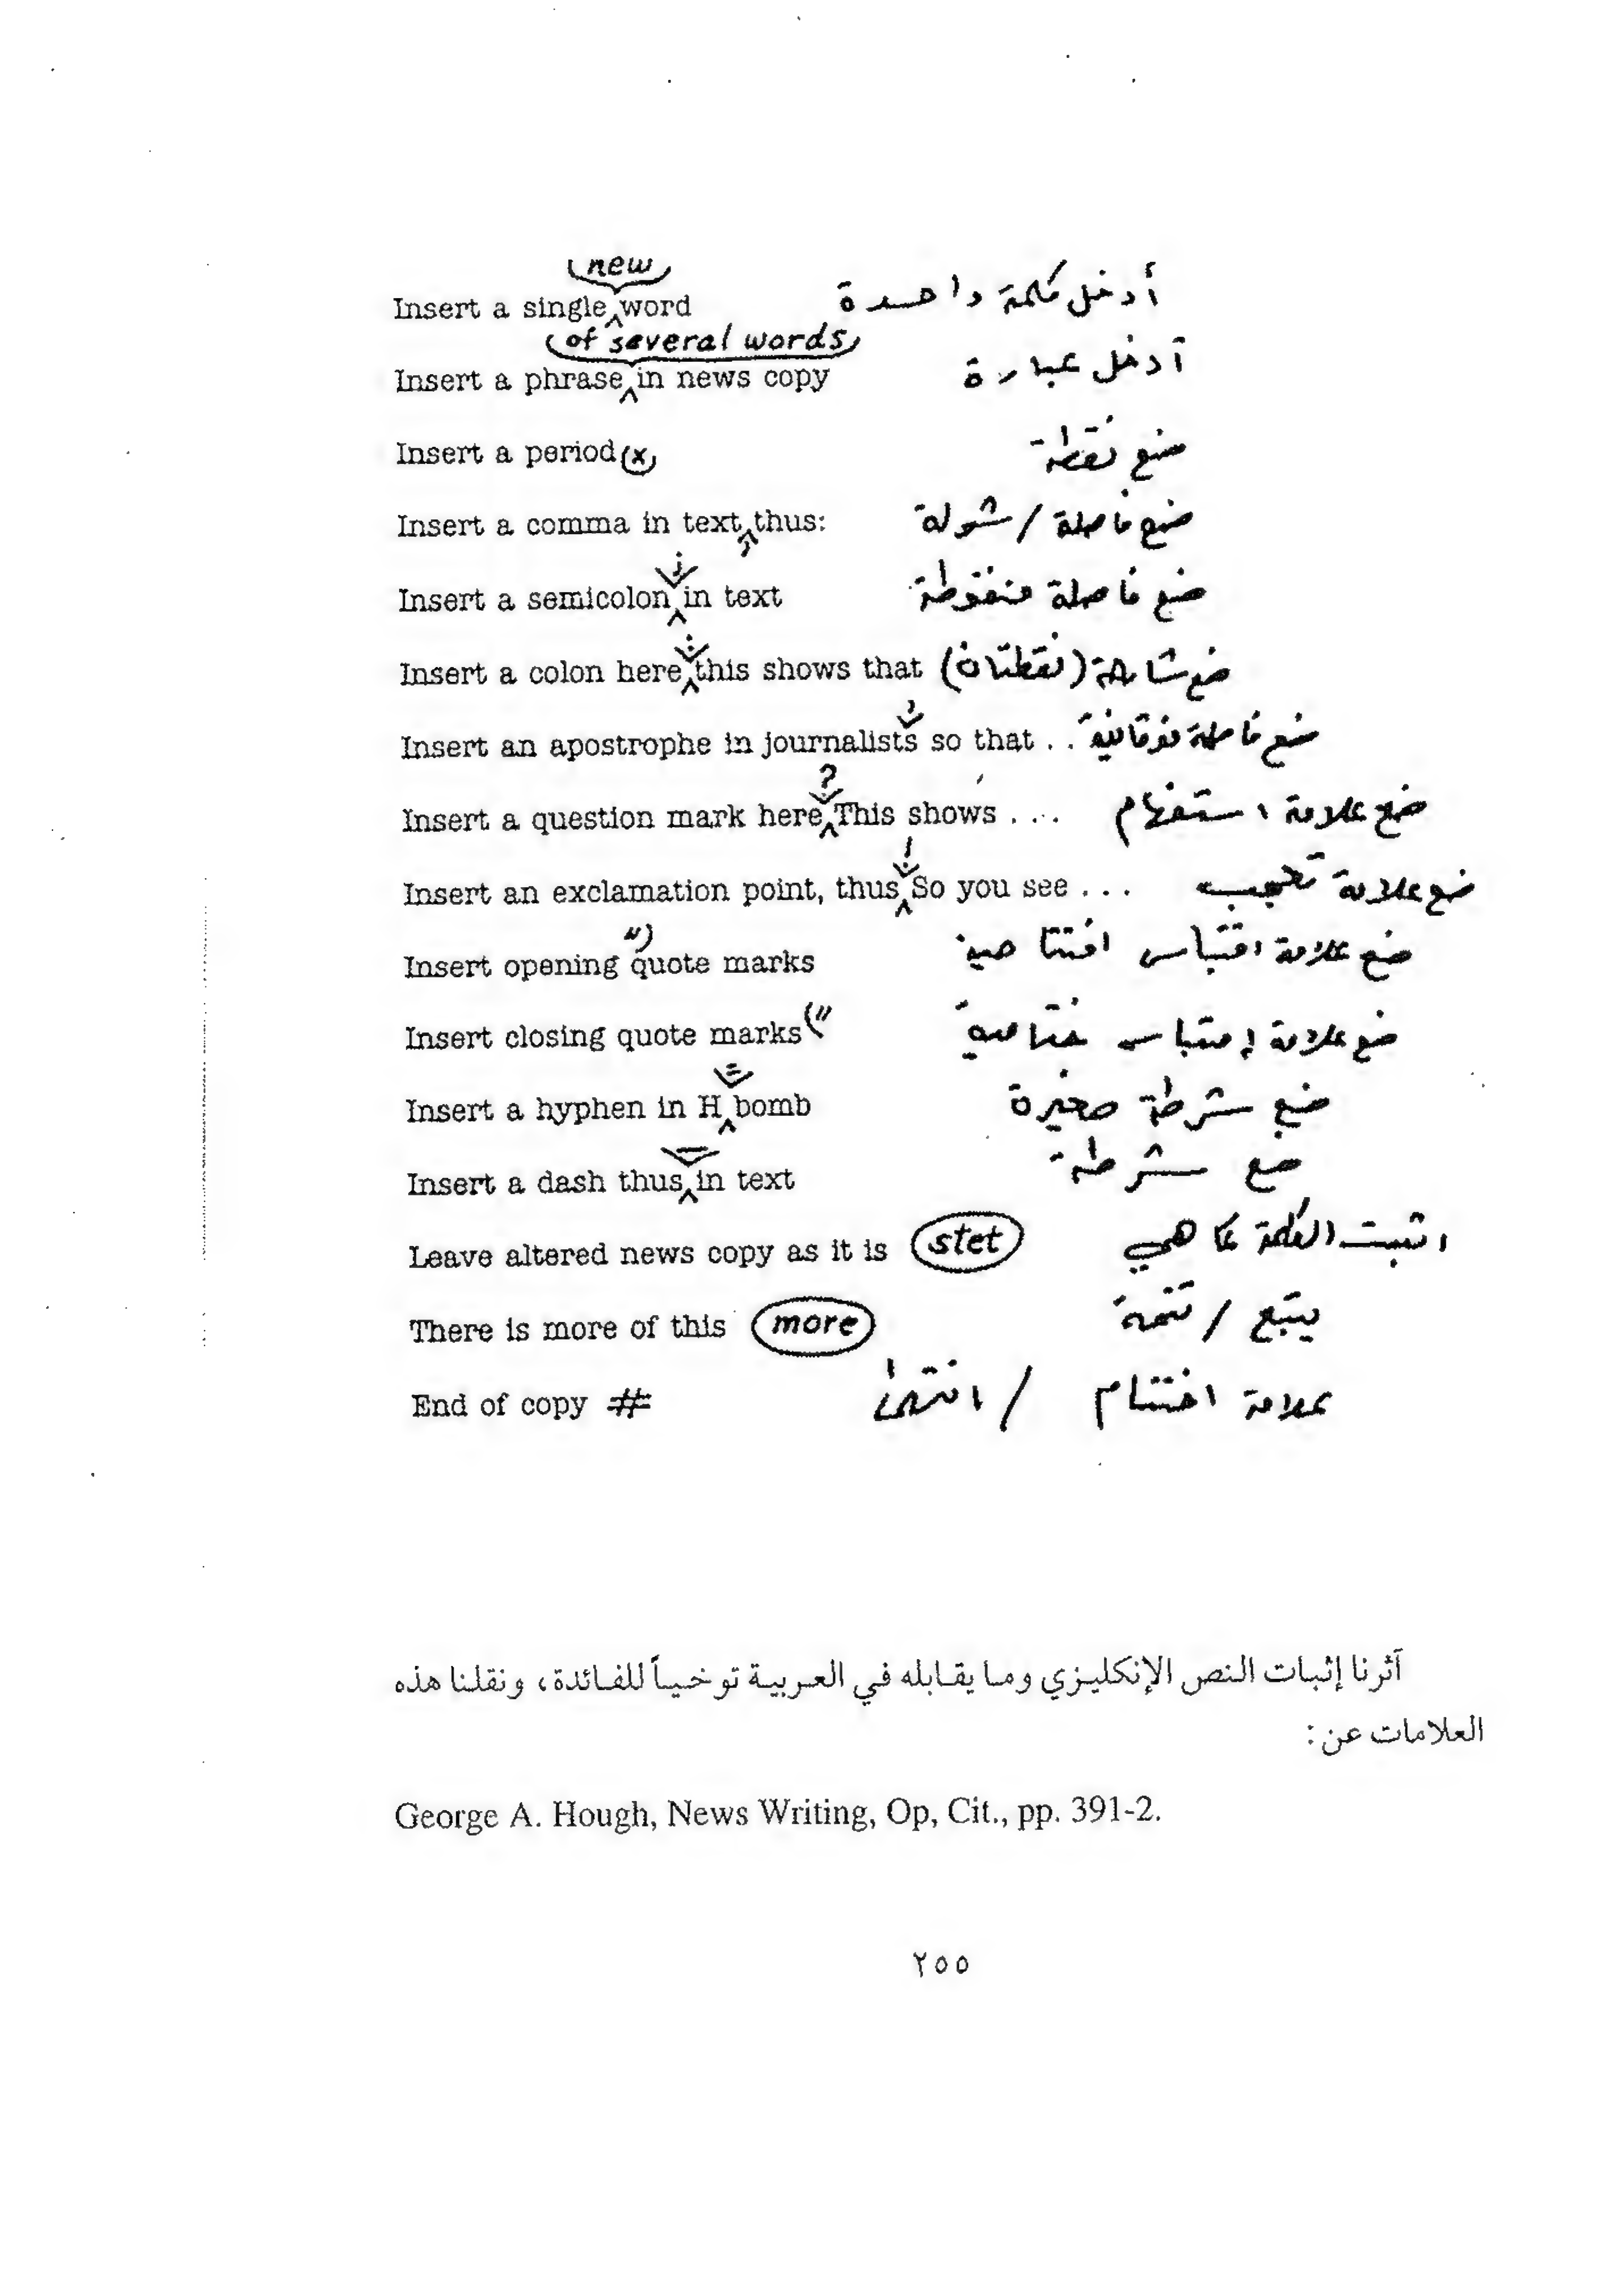 new
Insert a single word أدخل كلمة واحدة
of several words
Insert a phrase in news copy أدخل عبارة
Insert a period (x) ضع نقطة
Insert a comma in text, thus: ضع فاصلة / شولة
;
Insert a semicolon in text ضع فاصلة منقوطة
:
Insert a colon here this shows that ضع شارحة (نقطتان)
'
Insert an apostrophe in journalists so that . . ضع فاصلة فوقانية
?
Insert a question mark here This shows . . . ضع علامة استفهام
!
Insert an exclamation point, thus So you see . . . ضع علامة تعجب
"
Insert opening quote marks ضع علامة اقتباس افتتاحية
Insert closing quote marks " ضع علامة إقتباس ختامية
=
Insert a hyphen in H bomb ضع شرطة صغيرة
Insert a dash thus in text ضع شرطة
Leave altered news copy as it is stet اثبت الكلمة كما هي
There is more of this more يتبع / تتمة
End of copy # علامة اختتام / انتهى
آثرنا إثبات النص الإنكليزي وما يقابله في العربية توخياً للفائدة، ونقلنا هذه
العلامات عن :
George A. Hough, News Writing, Op, Cit., pp. 391-2.
٢٥٥